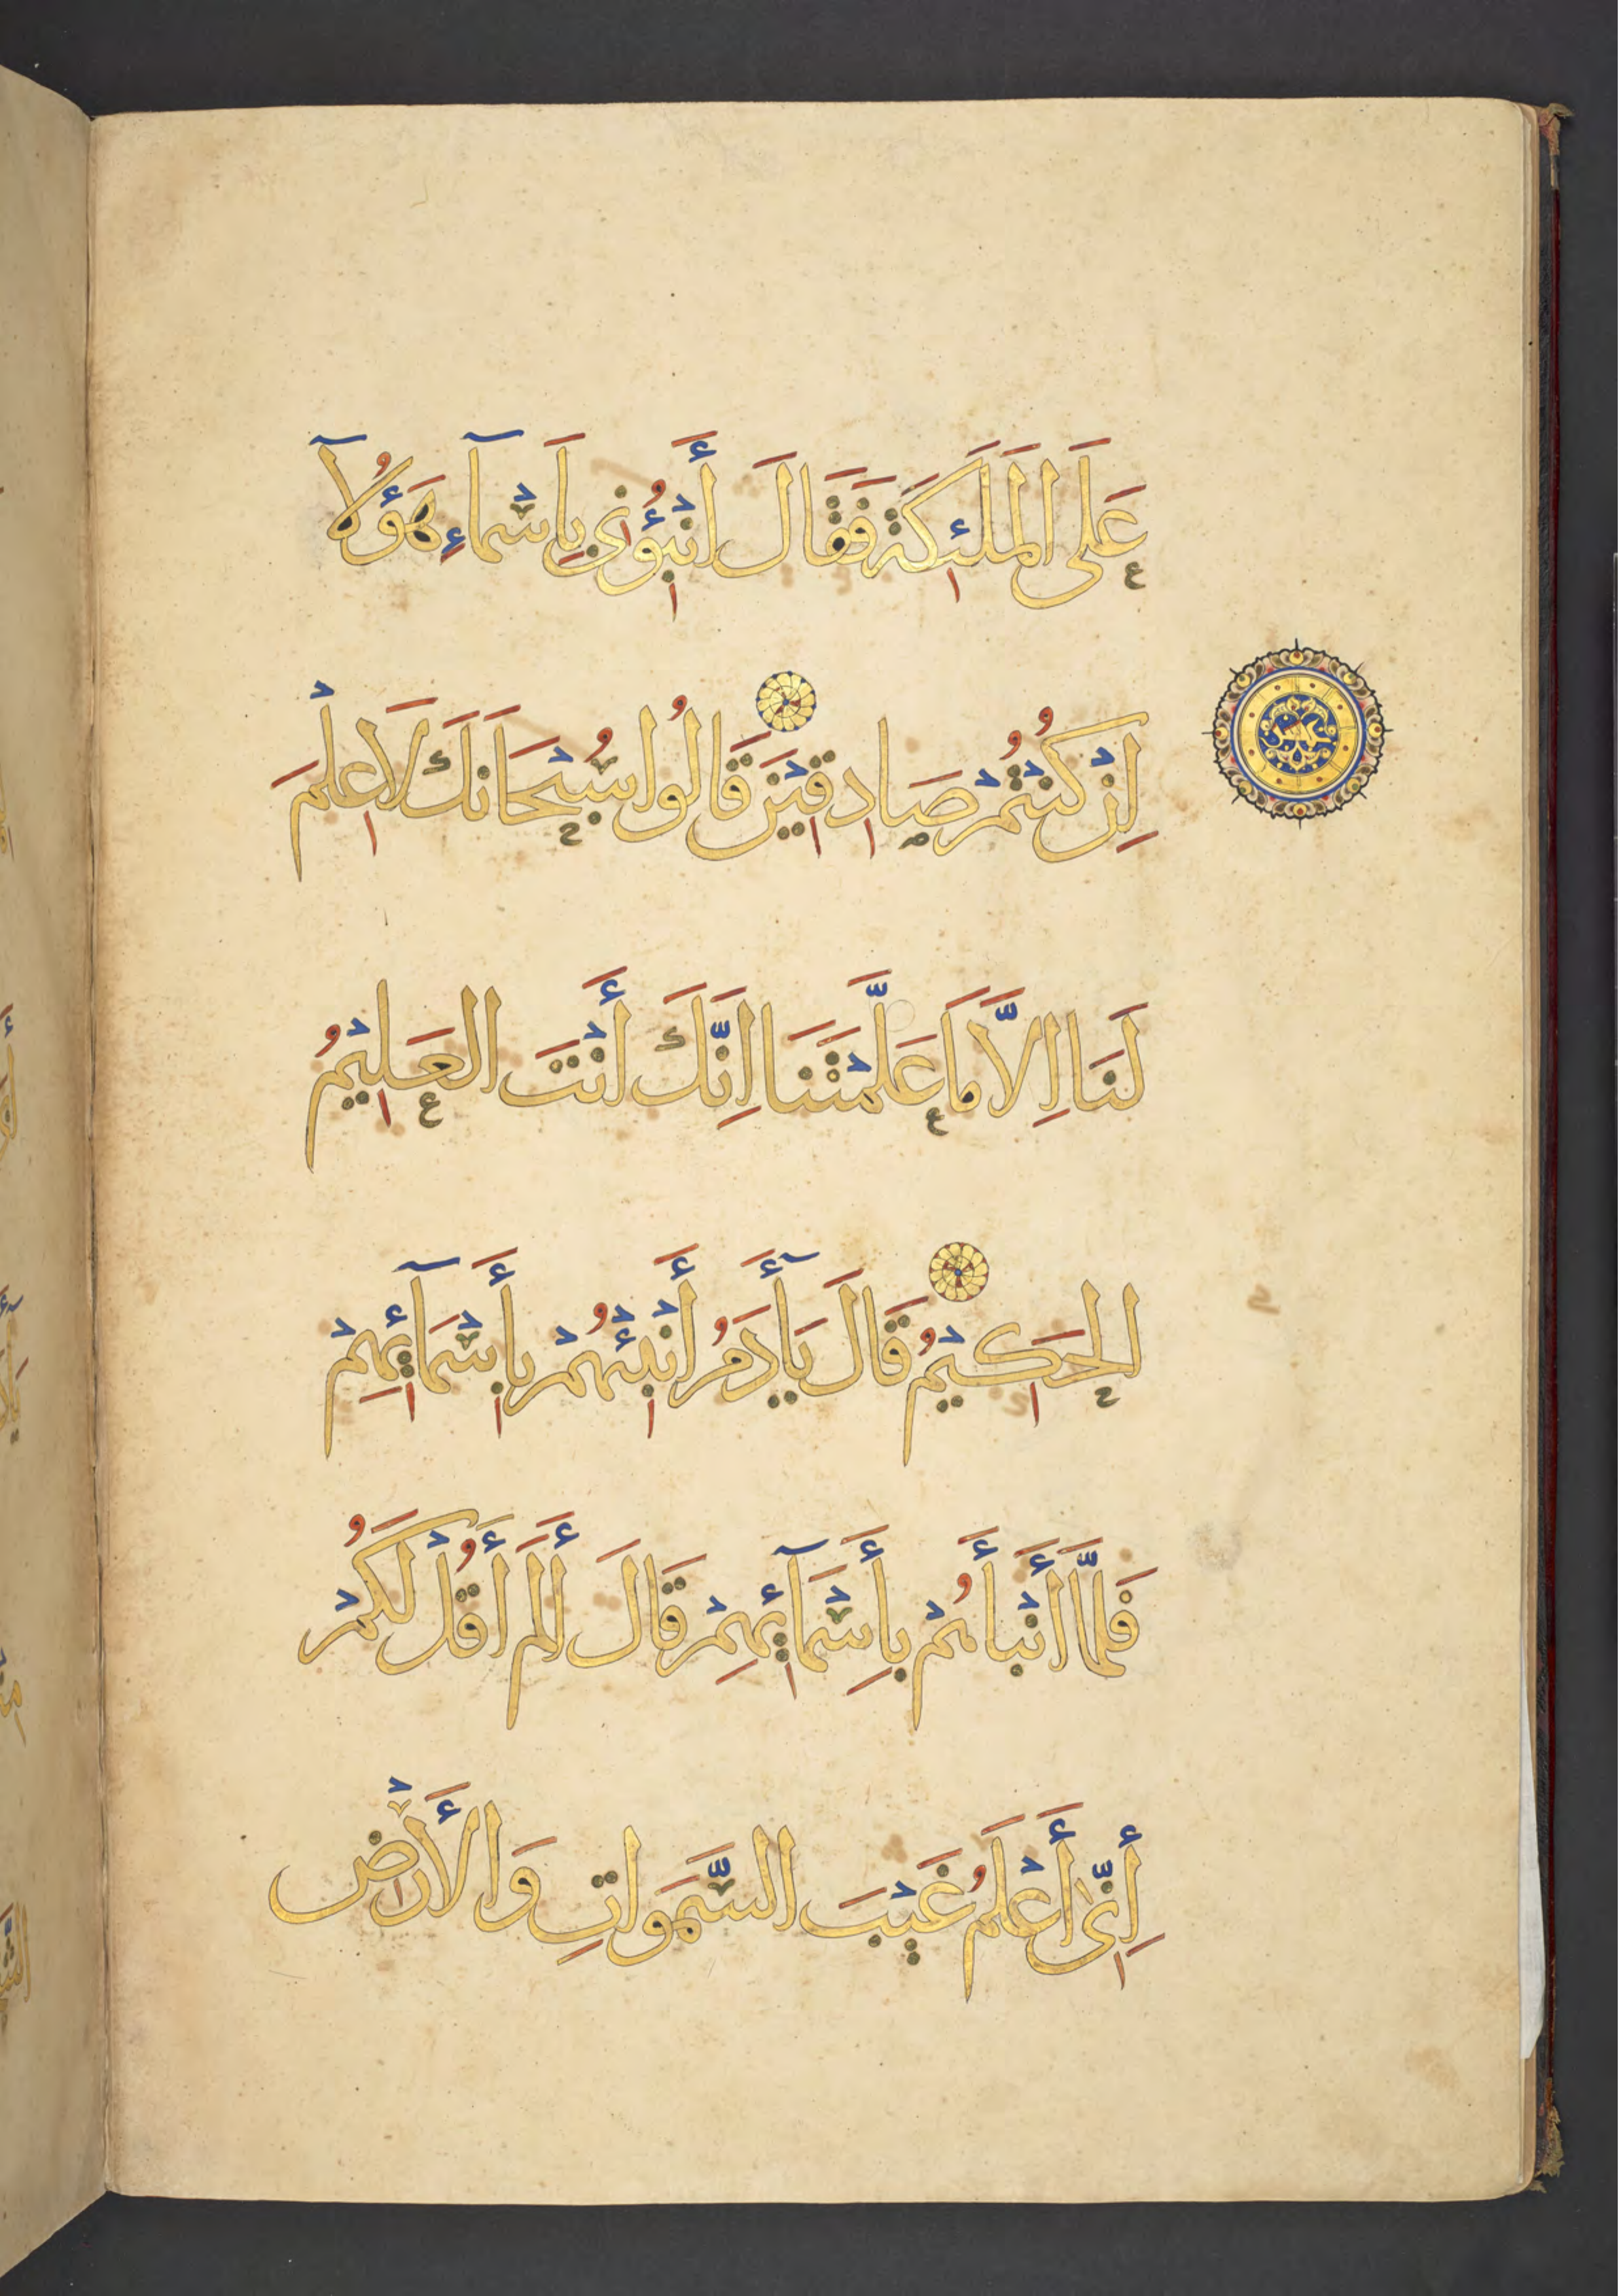 عَلَى الْمَلَئِكَةِ فَقَالَ أَنْبِؤُنِي بِاَسْمَآءِ هَؤُلَآ
اِنْ كُنْتُمْ صَادِقِيْنَ قَالُوا سُبْحَانَكَ لَا عِلْمَ
لَنَا اِلَّا مَا عَلَّمْتَنَا اِنَّكَ أَنْتَ الْعَلِيْمُ
الْحَكِيْمُ قَالَ يَآأَدَمُ أَنْبِئْهُمْ بِأَسْمَآئِهِمْ
فَلَمَّا أَنْبَأَهُمْ بِأَسْمَآئِهِمْ قَالَ أَلَمْ أَقُلْ لَكُمْ
إِنِّي أَعْلَمُ غَيْبَ السَّمَوَاتِ وَالْأَرْضِ